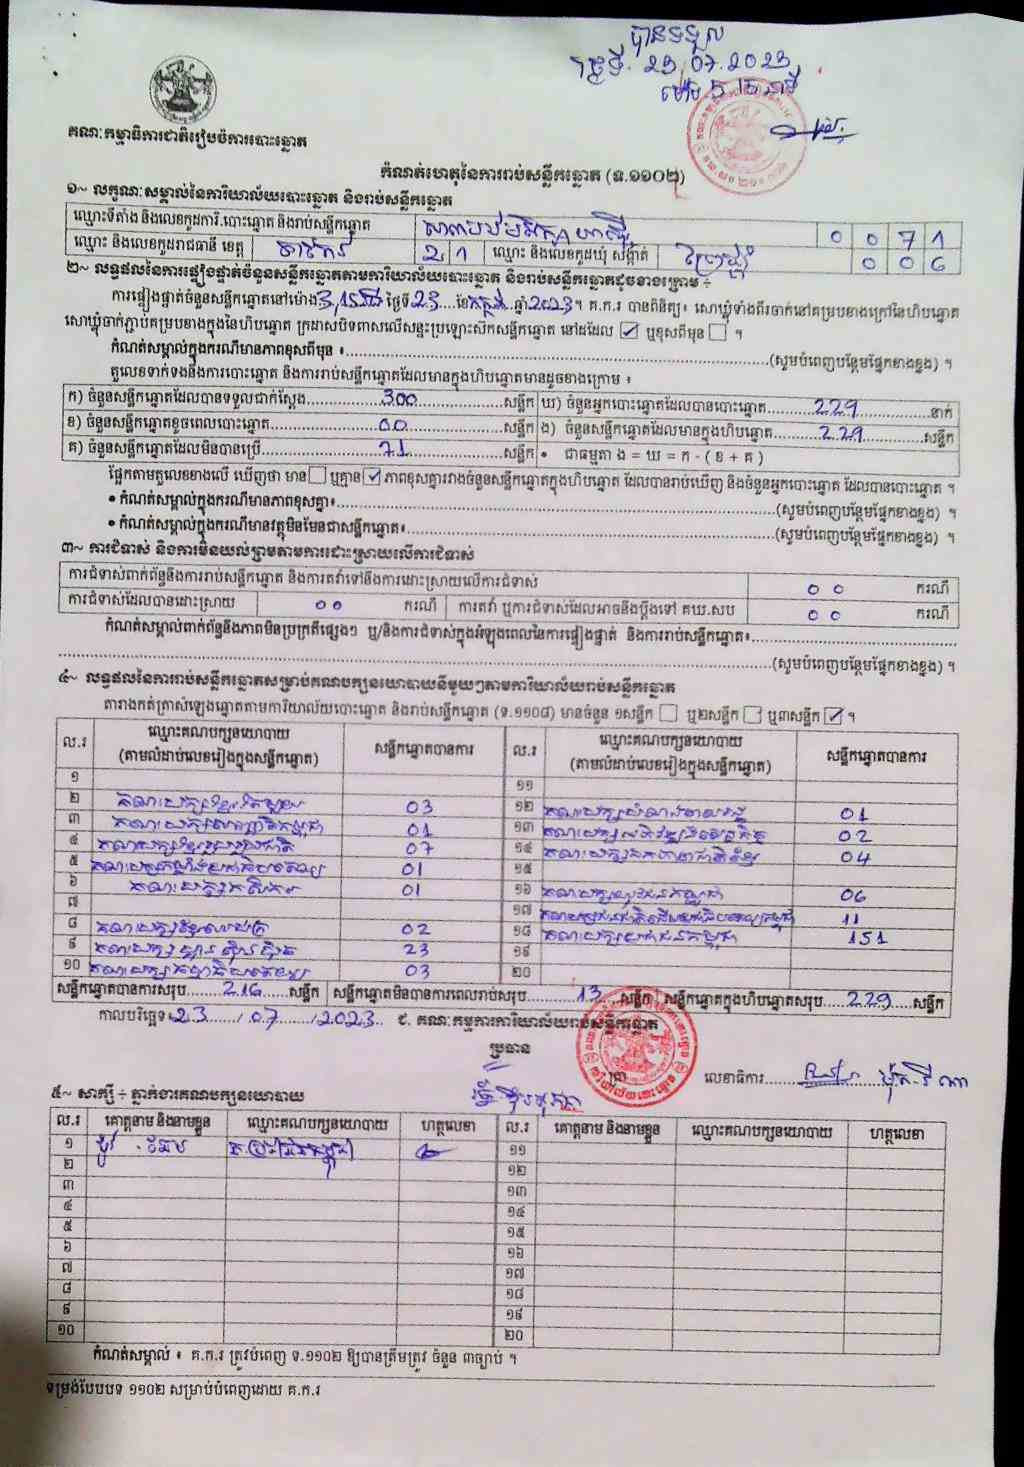 បានទទួល
ថ្ងៃទី. 23.07.2023
ម៉ោង
គណៈកម្មាធិការជាតិរៀបចំការបោះឆ្នោត
កំណត់ហេតុនៃការរាប់សន្លឹកឆ្នោត (ទ.១១០២)
១~ លក្ខណៈសម្គាល់នៃការិយាល័យបោះឆ្នោត និងរាប់សន្លឹកឆ្នោត
ឈ្មោះទីតាំង និងលេខកូដការិ.បោះឆ្នោត និងរាប់សន្លឹកឆ្នោត 0 0 7 1
ឈ្មោះ និងលេខកូដរាជធានី ខេត្ត តាកែវ 2 1 ឈ្មោះ និងលេខកូដឃុំ សង្កាត់ 0 0 6
២~ លទ្ធផលនៃការផ្ទៀងផ្ទាត់ចំនួនសន្លឹកឆ្នោតតាមការិយាល័យបោះឆ្នោត និងរាប់សន្លឹកឆ្នោតដូចខាងក្រោម ÷
ការផ្ទៀងផ្ទាត់ចំនួនសន្លឹកឆ្នោតនៅម៉ោង ថ្ងៃទី 23 ខែ កក្កដា ឆ្នាំ 2023។ គ.ក.រ បានពិនិត្យ៖ សោឃ្លុំទាំងពីរចាក់នៅគម្របខាងក្រៅនៃហិបឆ្នោត
សោឃ្លុំចាក់ភ្ជាប់គម្របខាងក្នុងនៃហិបឆ្នោត ក្រដាសបិទពាសលើសន្ទះប្រឡោះសឹកសន្លឹកឆ្នោត នៅដដែល ☑ ឬខុសពីមុន ☐ ។
កំណត់សម្គាល់ក្នុងករណីមានភាពខុសពីមុន ៖......(សូមបំពេញបន្ថែមផ្នែកខាងខ្នង) ។
តួលេខទាក់ទងនឹងការបោះឆ្នោត និងការរាប់សន្លឹកឆ្នោតដែលមានក្នុងហិបឆ្នោតមានដូចខាងក្រោម ៖
ក) ចំនួនសន្លឹកឆ្នោតដែលបានទទួលជាក់ស្តែង......300......សន្លឹក ឃ) ចំនួនអ្នកបោះឆ្នោតដែលបានបោះឆ្នោត......229......នាក់
ខ) ចំនួនសន្លឹកឆ្នោតខូចពេលបោះឆ្នោត......00......សន្លឹក ង) ចំនួនសន្លឹកឆ្នោតដែលមានក្នុងហិបឆ្នោត......229......សន្លឹក
គ) ចំនួនសន្លឹកឆ្នោតដែលមិនបានប្រើ......71......សន្លឹក • ជាធម្មតា ង = ឃ = ក - ( ខ + គ )
ផ្អែកតាមតួលេខខាងលើ ឃើញថា មាន☐ ឬគ្មាន☑ ភាពខុសគ្នារវាងចំនួនសន្លឹកឆ្នោតក្នុងហិបឆ្នោត ដែលបានរាប់ឃើញ និងចំនួនអ្នកបោះឆ្នោត ដែលបានបោះឆ្នោត ។
• កំណត់សម្គាល់ក្នុងករណីមានភាពខុសគ្នា៖......(សូមបំពេញបន្ថែមផ្នែកខាងខ្នង) ។
• កំណត់សម្គាល់ក្នុងករណីមានវត្ថុមិនមែនជាសន្លឹកឆ្នោត៖......(សូមបំពេញបន្ថែមផ្នែកខាងខ្នង) ។
៣~ ការជំទាស់ និងការមិនយល់ព្រមតាមការដោះស្រាយលើការជំទាស់
ការជំទាស់ពាក់ព័ន្ធនឹងការរាប់សន្លឹកឆ្នោត និងការតវ៉ាទៅនឹងការដោះស្រាយលើការជំទាស់ 0 0 ករណី
ការជំទាស់ដែលបានដោះស្រាយ 0 0 ករណី ការតវ៉ា ឬការជំទាស់ដែលអាចនឹងប្តឹងទៅ គឃ.សប 0 0 ករណី
កំណត់សម្គាល់ពាក់ព័ន្ធនឹងភាពមិនប្រក្រតីផ្សេងៗ ឬ/និងការជំទាស់ក្នុងអំឡុងពេលនៃការផ្ទៀងផ្ទាត់ និងការរាប់សន្លឹកឆ្នោត៖......
......(សូមបំពេញបន្ថែមផ្នែកខាងខ្នង) ។
៤~ លទ្ធផលនៃការរាប់សន្លឹកឆ្នោតសម្រាប់គណបក្សនយោបាយនីមួយៗតាមការិយាល័យរាប់សន្លឹកឆ្នោត
តារាងកត់ត្រាសំឡេងឆ្នោតតាមការិយាល័យបោះឆ្នោត និងរាប់សន្លឹកឆ្នោត (ទ.១១០៨) មានចំនួន ១សន្លឹក ☐ ឬ២សន្លឹក ☐ ឬ៣សន្លឹក ☑ ។
ល.រ ឈ្មោះគណបក្សនយោបាយ (តាមលំដាប់លេខរៀងក្នុងសន្លឹកឆ្នោត) សន្លឹកឆ្នោតបានការ ល.រ ឈ្មោះគណបក្សនយោបាយ (តាមលំដាប់លេខរៀងក្នុងសន្លឹកឆ្នោត) សន្លឹកឆ្នោតបានការ
១ ១១
២ គណបក្ស 03 ១២ គណបក្ស 01
៣ គណបក្ស 01 ១៣ គណបក្ស 02
៤ គណបក្ស 07 ១៤ គណបក្ស 04
៥ គណបក្ស 01 ១៥
៦ គណបក្ស 01 ១៦ គណបក្ស 06
៧ ១៧ គណបក្ស 11
៨ គណបក្ស 02 ១៨ គណបក្សប្រជាជនកម្ពុជា 151
៩ គណបក្ស ហ្វ៊ុនស៊ិនប៉ិច 23 ១៩
១០ គណបក្ស 03 ២០
សន្លឹកឆ្នោតបានការសរុប......216......សន្លឹក សន្លឹកឆ្នោតមិនបានការពេលរាប់សរុប......13......សន្លឹក សន្លឹកឆ្នោតក្នុងហិបឆ្នោតសរុប......229......សន្លឹក
កាលបរិច្ឆេទ 23/07/2023 ៩. គណៈកម្មការការិយាល័យរាប់សន្លឹកឆ្នោត
ប្រធាន
លេខាធិការ......
៥~ សាក្សី ÷ ភ្នាក់ងារគណបក្សនយោបាយ
ល.រ គោត្តនាម និងនាមខ្លួន ឈ្មោះគណបក្សនយោបាយ ហត្ថលេខា ល.រ គោត្តនាម និងនាមខ្លួន ឈ្មោះគណបក្សនយោបាយ ហត្ថលេខា
១ ១១
២ ១២
៣ ១៣
៤ ១៤
៥ ១៥
៦ ១៦
៧ ១៧
៨ ១៨
៩ ១៩
១០ ២០
កំណត់សម្គាល់ ៖ គ.ក.រ ត្រូវបំពេញ ទ.១១០២ ឱ្យបានត្រឹមត្រូវ ចំនួន ៣ច្បាប់ ។
ទម្រង់បែបបទ ១១០២ សម្រាប់បំពេញដោយ គ.ក.រ